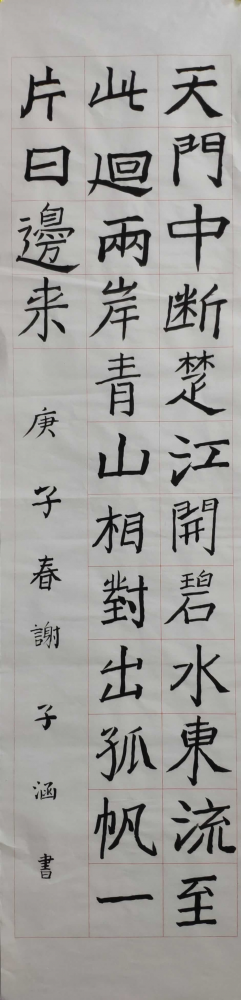 天門中断楚江開碧水東流至
此迴兩岸青山相對出孤帆一
片日邊来
庚子春謝子涵書